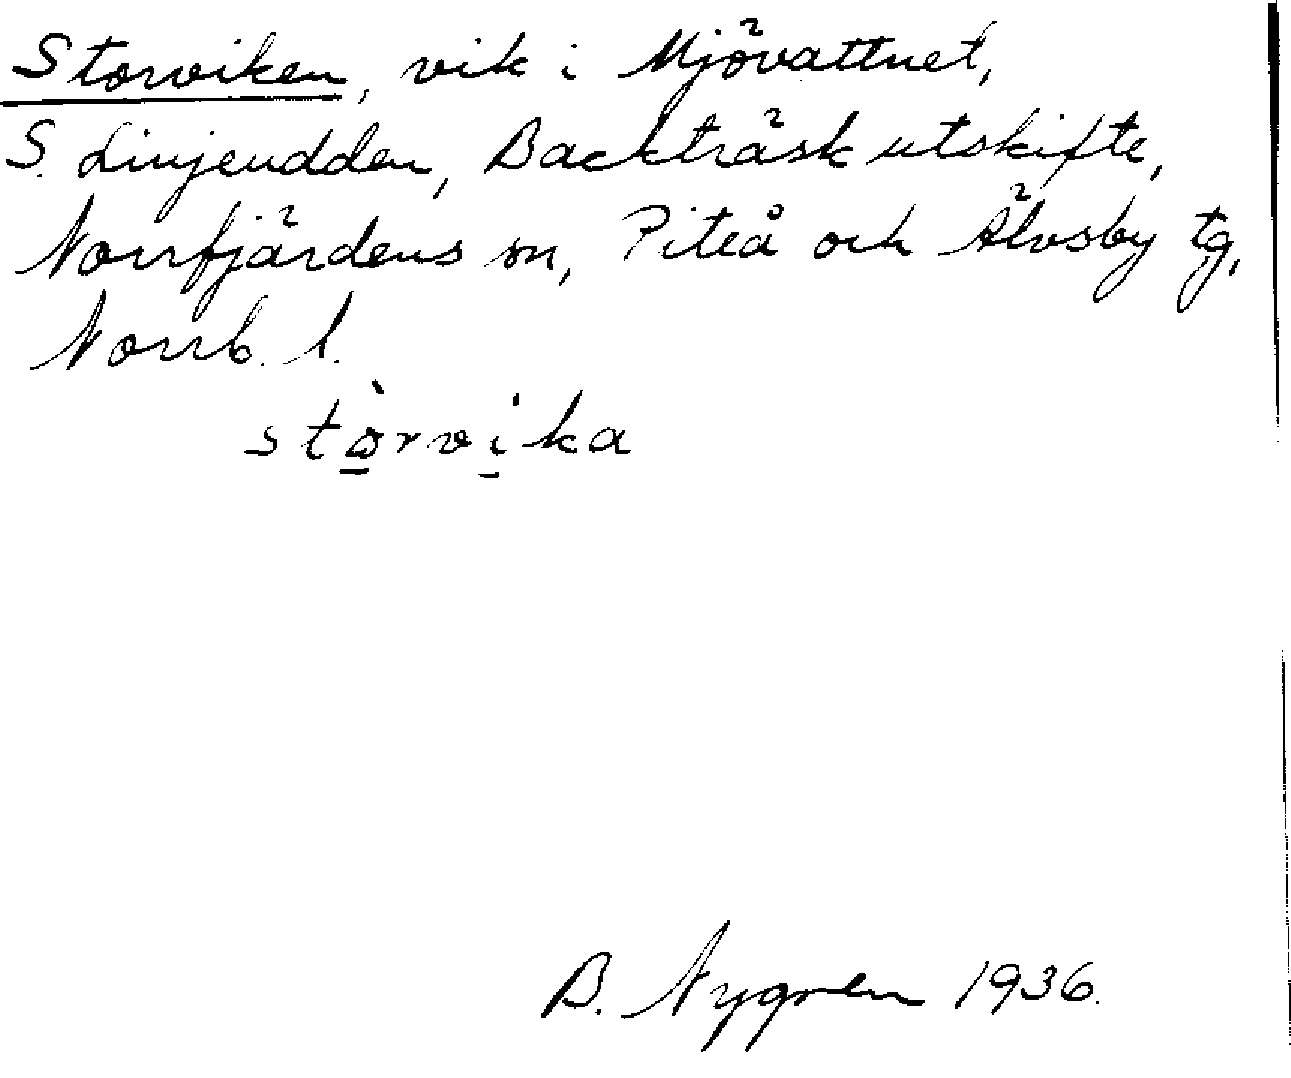 Storviken, vik i Mjövattnet,
S. Linjeudden, Backträsk utskifte,
Norrfjärdens sn, Piteå och Älvsby tg,
Norrb. l.
stòrvika
B. Nygren 1936.